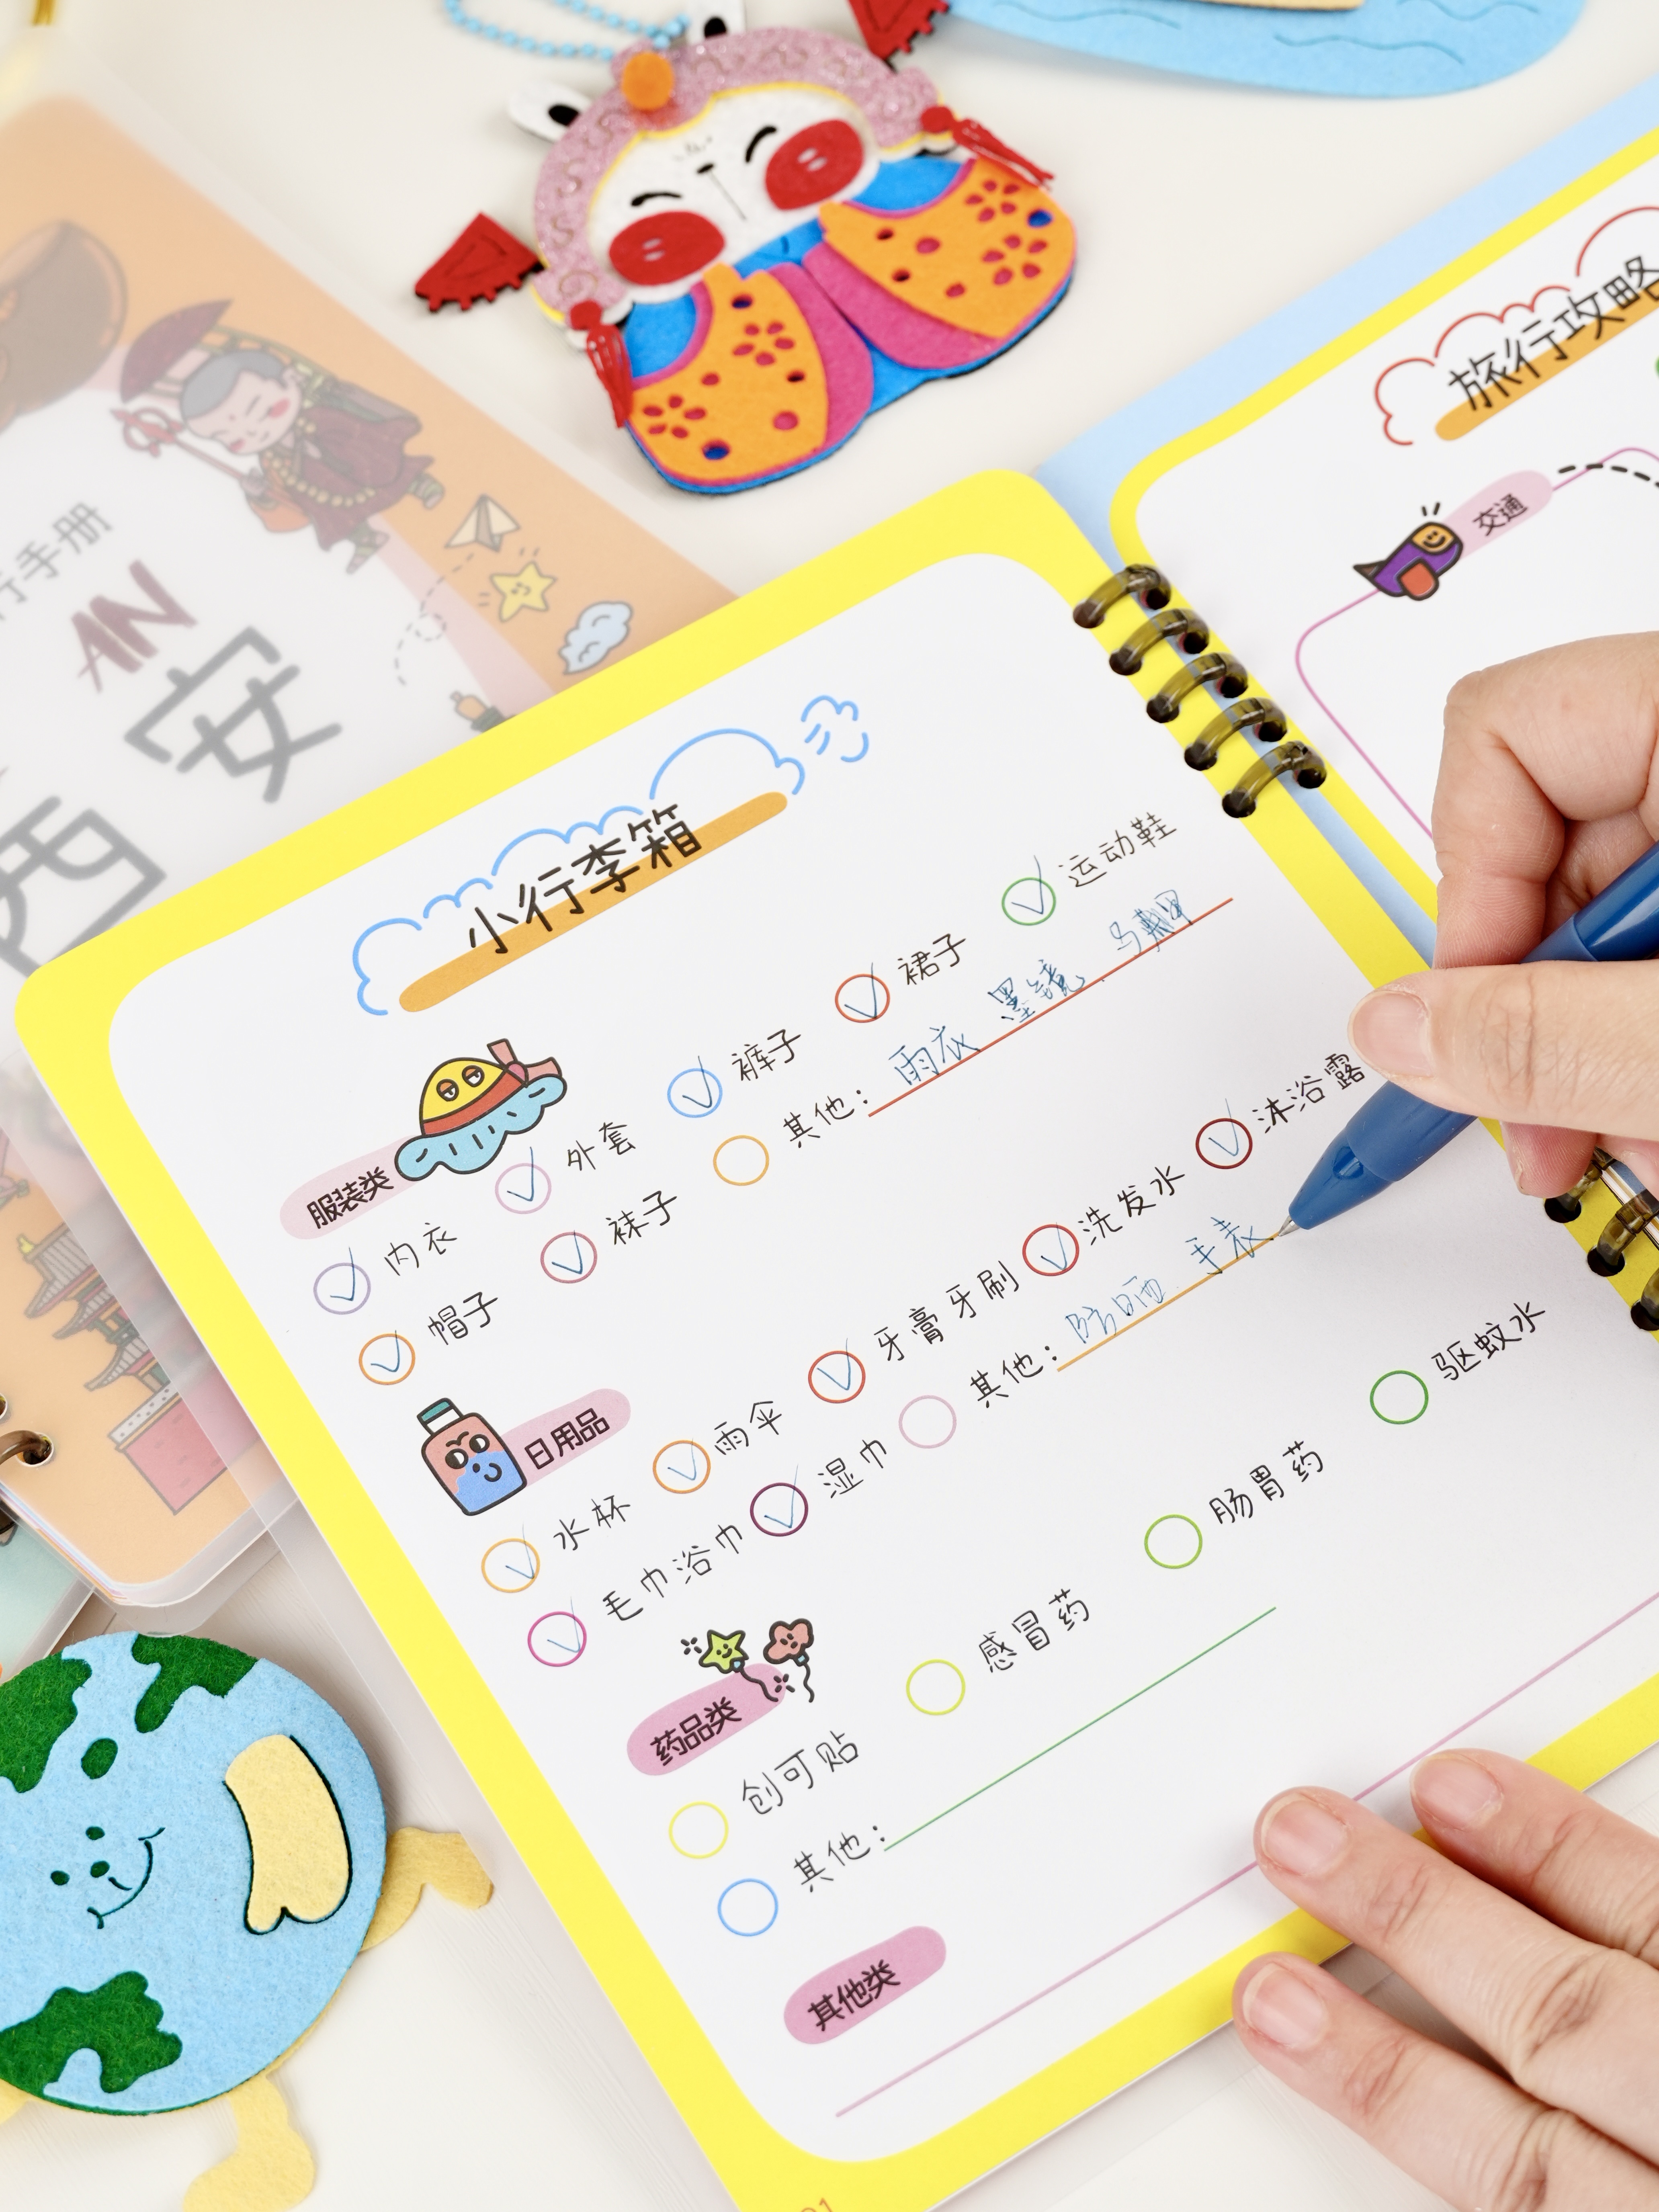 行手册
AN
西安
旅行攻略
交通
小行李箱
服装类
内衣 外套 裤子 裙子 运动鞋
帽子 袜子 其他: 雨衣 墨镜、马
日用品
水杯 雨伞 牙膏牙刷 洗发水 沐浴露
毛巾浴巾 湿巾 其他: 防晒 手表
药品类
创可贴 感冒药 肠胃药 驱蚊水
其他:
其他类